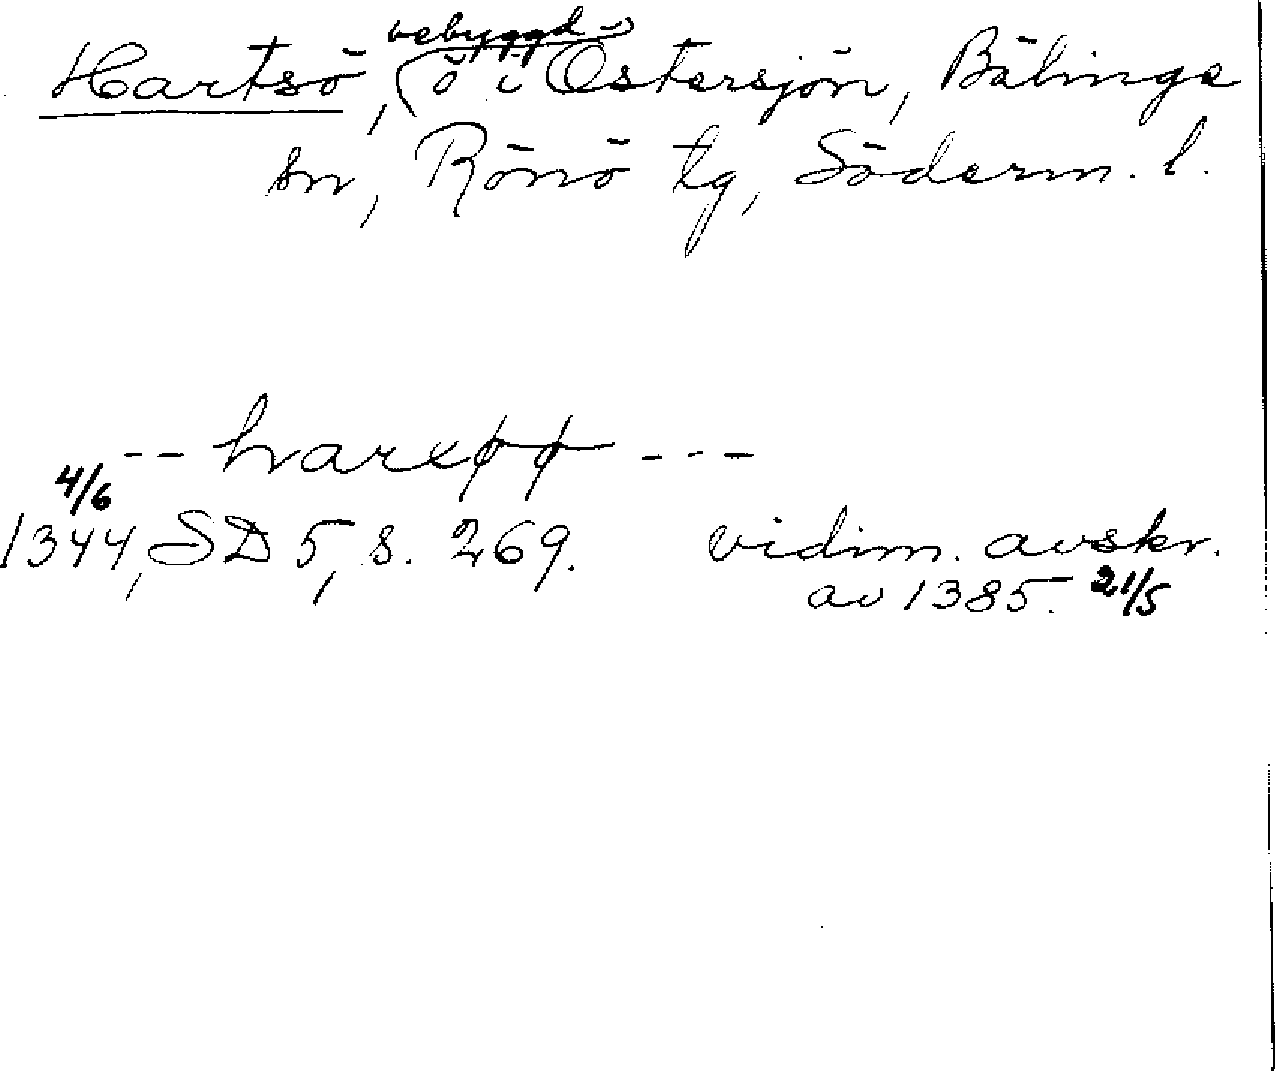 bebyggd
Hartsö, ö i Östersjön, Bälinge
sn, Rönö tg, Söderm. l.
-- harexøø ---
4/6
1344, SD 5, s. 269. vidim. avskr.
av 1385. 21/5